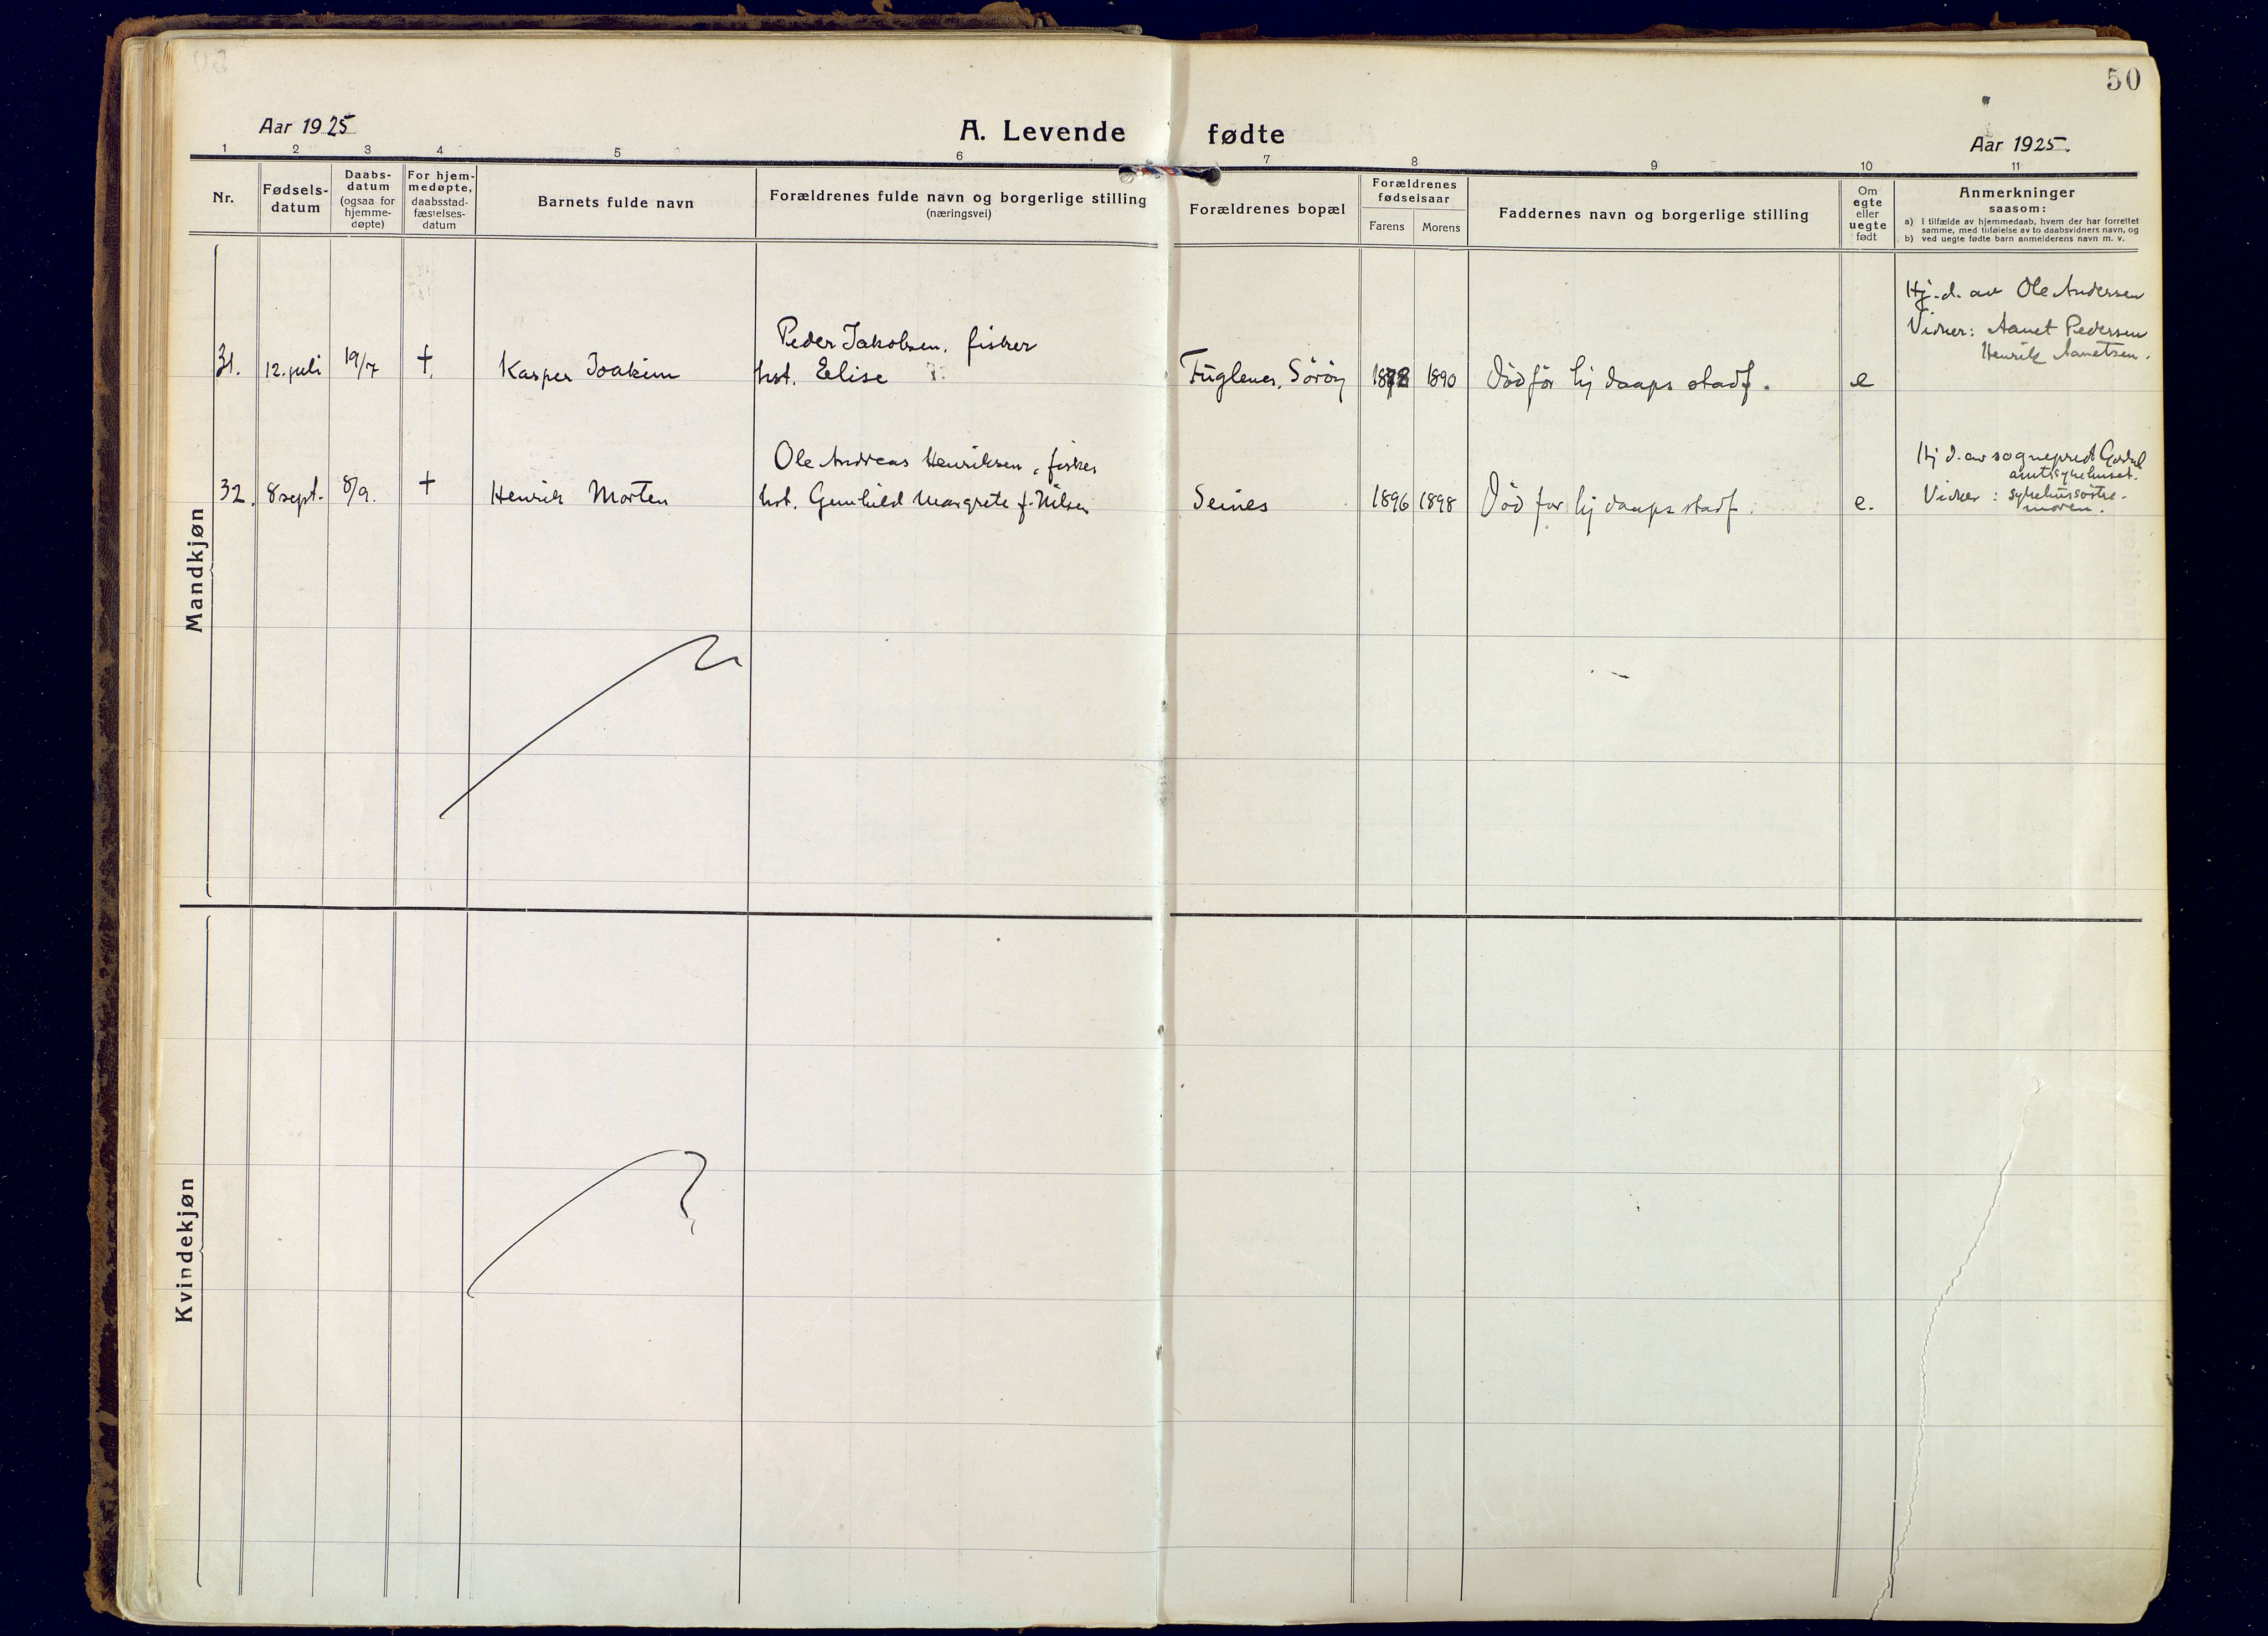 50
Aar 1925
A. Levende fødte
Aar 1925.
1 2 3 4 5 6 7 8 9 10 11
Nr.
Fødsels-
datum
Daabs-
datum
(ogsaa for
hjemme-
døpte)
For hjem-
medøpte,
daabsstad-
fæstelses-
datum
Barnets fulde navn
Forældrenes fulde navn og borgerlige stilling
(næringsvei)
Forældrenes bopæl
Forældrenes
fødselsaar
Farens Morens
Faddernes navn og borgerlige stilling
Om
egte
eller
uegte
født
Anmerkninger
saasom:
a) i tilfælde av hjemmedaab, hvem der har forrettet
samme, med tilføielse av to daabsvidners navn, og
b) ved uegte fødte barn anmelderens navn m. v.
Mandkjøn
Hj. d. av Ole Andersen
Vidner: Aanet Pedersen
Henrik Aanetsen.
Peder Jakobsen, fisker
31. 12. juli 19/7 † Kasper Joakim hst. Elise Fuglenes, Söröy 1872 1890 Död för hj daaps stadf. e
Ole Andreas Henriksen, fisker
32. 8 sept. 8/9. † Henrik Morten hst. Gunhild Margrete f. Nilsen Seines 1896 1898 Död for hj daaps stadf. e.
Hj d. av sogneprest
amtssykehuset.
Vidner: sykehussöstre.
moren.
Kvindekjøn